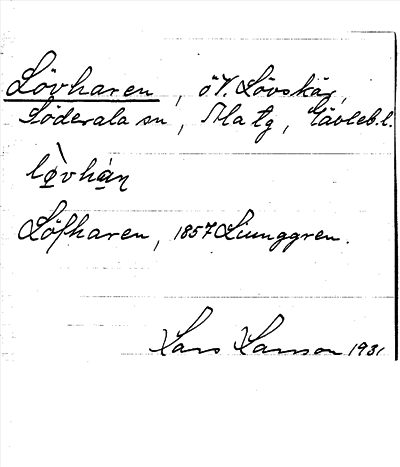 Lövharen, öV. Lövskär,
Söderala sn, Ala tg, Gävleb. l.
lø̀vhàṇ
Löfharen, 1857 Liunggren.
Lars Hanson 1931